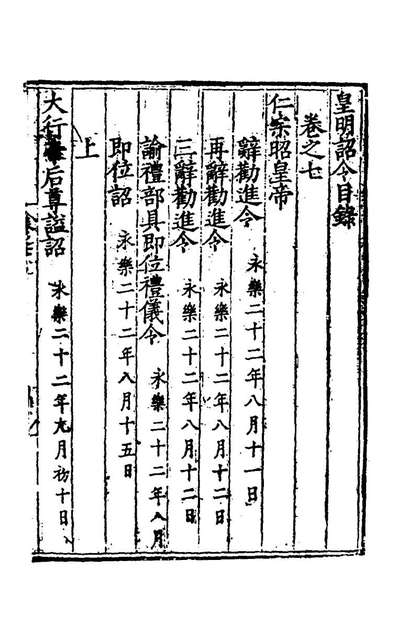 皇明詔令目録
卷之七
仁宗昭皇帝
辭勸進令 永樂二十二年八月十一日
再辭勸進令 永樂二十二年八月十二日
三辭勸進令 永樂二十二年八月十二日
諭禮部具即位禮儀令 永樂二十二年八月
即位詔 永樂二十二年八月十五日
上
大行 后尊謚詔 永樂二十二年九月初十日